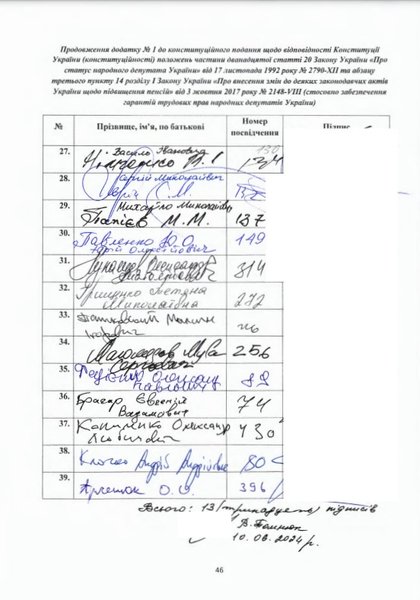 Продовження додатку № 1 до конституційного подання щодо відповідності Конституції
України (конституційності) положень частини дванадцятої статті 20 Закону України «Про
статус народного депутата України» від 17 листопада 1992 року № 2790-XII та абзацу
третього пункту 14 розділу I Закону України «Про внесення змін до деяких законодавчих актів
України щодо підвищення пенсій» від 3 жовтня 2017 року № 2148-VIII (стосовно забезпечення
гарантій трудових прав народних депутатів України)
№ Прізвище, ім'я, по батькові Номер посвідчення Підпис
27. Василь Іванович
28. Сергій Миколайович
29. Михайло Миколайович
Папієв М.М. 137
30. Павленко Ю.О. 149
Юрій Олексійович
31. Лукашев Олександр
Анатолійович 314
32. Грищенко Тетяна
Миколаївна 272
33.
Ігорович
34. Магомедов Муса
Сергоєвич 256
35. Олександр
Павлович 89
36. Брагар Євгеній
Вадимович 74
37. Копиленко Олександр
Любимович 430
38. Клочко Андрій Андрійович 80
39. О.О. 396
Всього: 13 (тринадцять) підписів
10.06.2024 р.
46